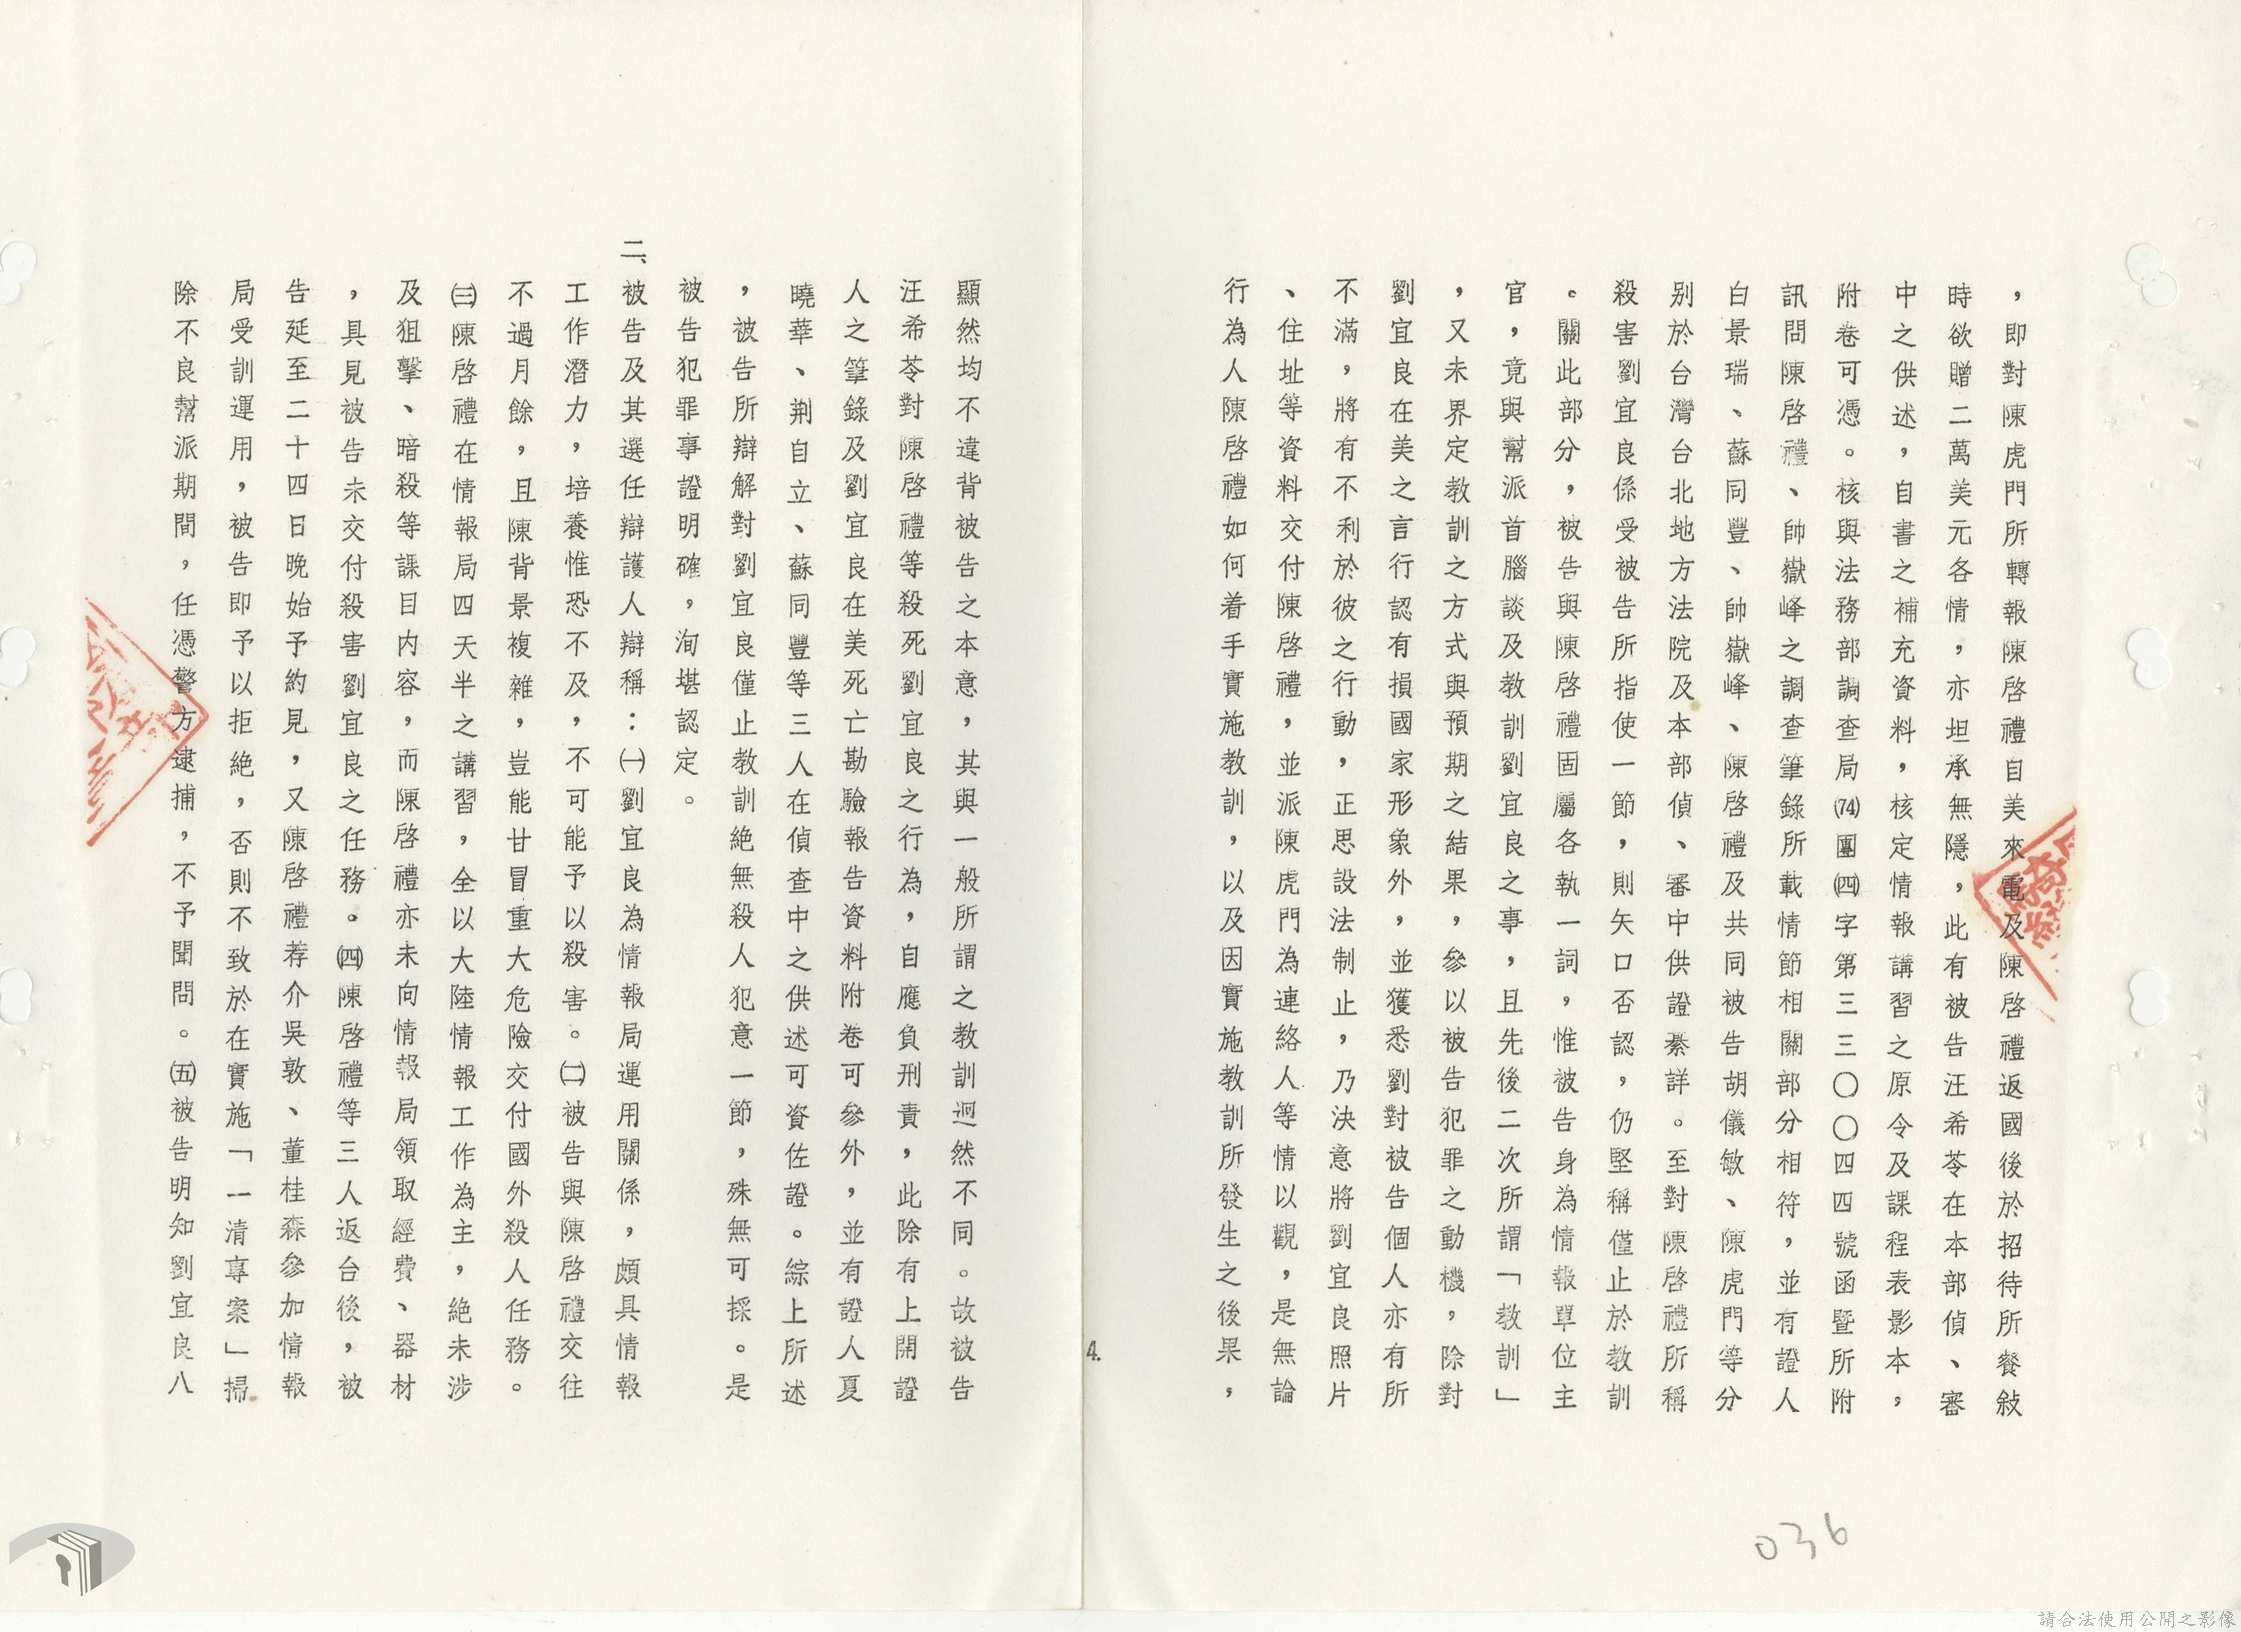 ，即對陳虎門所轉報陳啓禮自美來電及陳啓禮返國後於招待所餐敍
時欲贈二萬美元各情，亦坦承無隱，此有被告汪希苓在本部偵、審
中之供述，自書之補充資料，核定情報講習之原令及課程表影本，
附卷可憑。核與法務部調查局(74)團㈣字第三三〇〇四四號函暨所附
訊問陳啓禮、帥嶽峰之調查筆錄所載情節相關部分相符，並有證人
白景瑞、蘇同豐、帥嶽峰、陳啓禮及共同被告胡儀敏、陳虎門等分
別於台灣台北地方法院及本部偵、審中供證綦詳。至對陳啓禮所稱
殺害劉宜良係受被告所指使一節，則矢口否認，仍堅稱僅止於教訓
。關此部分，被告與陳啓禮固屬各執一詞，惟被告身為情報單位主
官，竟與幫派首腦談及教訓劉宜良之事，且先後二次所謂「教訓」
，又未界定教訓之方式與預期之結果，參以被告犯罪之動機，除對
劉宜良在美之言行認有損國家形象外，並獲悉劉對被告個人亦有所
不滿，將有不利於彼之行動，正思設法制止，乃決意將劉宜良照片
、住址等資料交付陳啓禮，並派陳虎門為連絡人等情以觀，是無論
行為人陳啓禮如何着手實施教訓，以及因實施教訓所發生之後果，
4.
顯然均不違背被告之本意，其與一般所謂之教訓迥然不同。故被告
汪希苓對陳啓禮等殺死劉宜良之行為，自應負刑責，此除有上開證
人之筆錄及劉宜良在美死亡勘驗報告資料附卷可參外，並有證人夏
曉華、荆自立、蘇同豐等三人在偵查中之供述可資佐證。綜上所述
，被告所辯解對劉宜良僅止教訓絕無殺人犯意一節，殊無可採。是
被告犯罪事證明確，洵堪認定。
二、被告及其選任辯護人辯稱：㈠劉宜良為情報局運用關係，頗具情報
工作潛力，培養惟恐不及，不可能予以殺害。㈡被告與陳啓禮交往
不過月餘，且陳背景複雜，豈能甘冒重大危險交付國外殺人任務。
㈢陳啓禮在情報局四天半之講習，全以大陸情報工作為主，絕未涉
及狙擊、暗殺等課目內容，而陳啓禮亦未向情報局領取經費、器材
，具見被告未交付殺害劉宜良之任務。㈣陳啓禮等三人返台後，被
告延至二十四日晚始予約見，又陳啓禮荐介吳敦、董桂森參加情報
局受訓運用，被告即予以拒絕，否則不致於在實施「一清專案」掃
除不良幫派期間，任憑警方逮捕，不予聞問。㈤被告明知劉宜良八
036
請合法使用公開之影像